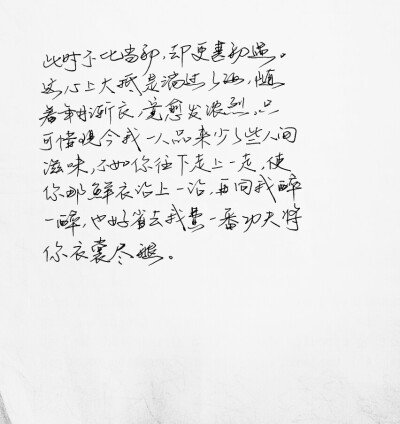 此时不比当初,却更甚初遇。
这心上大抵是淌过了酒,随
着年月渐长,竟愈发浓烈,只
可惜现今我一人品来少了些人间
滋味,不如你往下走上一走,使
你那鲜衣沾上一沾,再同我醉
一醉,也好省去我费一番功夫将
你衣裳尽褪。